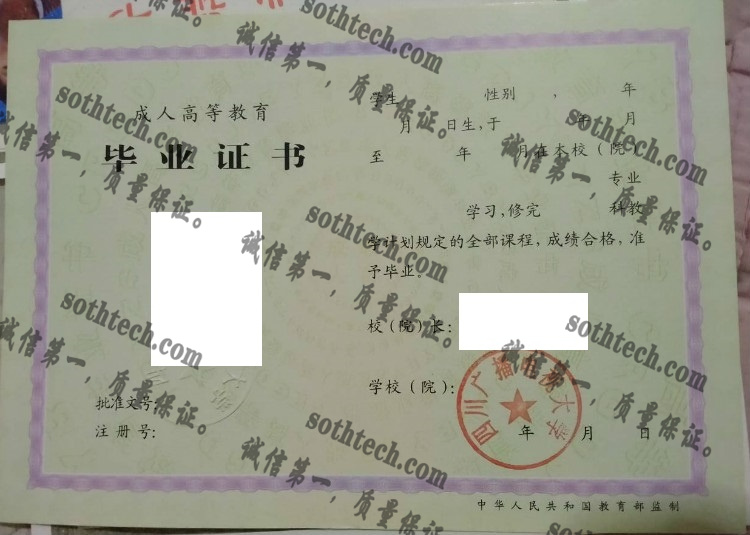 成人高等教育
毕业证书
批准文号:
注册号:
学生 性别 , 年
月 日生,于 年 月
至 年 月在本校(院)
专业
学习,修完 科教
学计划规定的全部课程,成绩合格,准
予毕业。
校(院)长:
学校(院):
四川广播电视大学
年 月 日
中华人民共和国教育部监制
sothtech.com
诚信第一,质量保证。
sothtech.com
诚信第一,质量保证。
sothtech.com
诚信第一,质量保证。
sothtech.com
诚信第一,质量保证。
sothtech.com
诚信第一,质量保证。
sothtech.com
诚信第一,质量保证。
sothtech.com
诚信第一,质量保证。
sothtech.com
诚信第一,质量保证。
sothtech.com